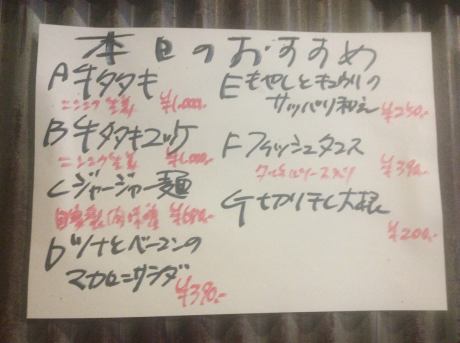 本日のおすすめ
A 牛タタキ
ニンニク 生姜 ¥1,000-
B 牛タタキユッケ
ニンニク 生姜 ¥1,000-
C ジャージャー麺
自家製肉味噌 ¥680-
D ツナとベーコンの
マカロニサラダ
¥390-
E もやしとキュウリの
サッパリ和え ¥250-
F フィッシュタコス
¥390-
G 切り干し大根
¥200-